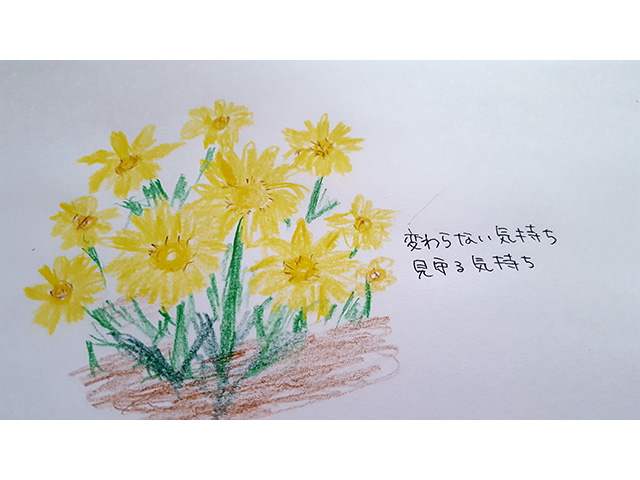 変わらない気持ち
見守る気持ち